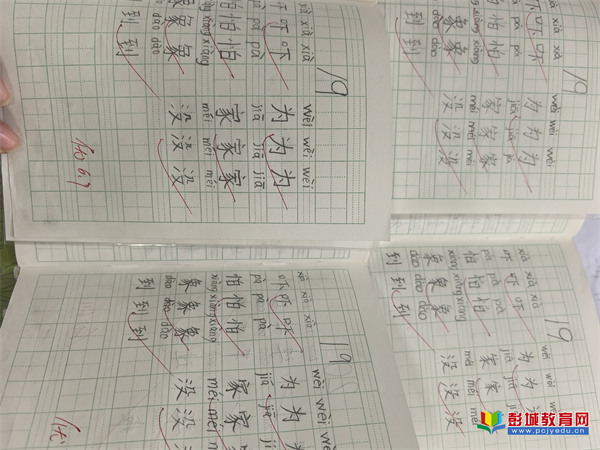 xià xià xià
吓吓吓
pà pà pà
怕怕怕
xiàng
象象象
dào dào
到到
19
wèi wèi wèi
为为为
jiā jiā jiā
家家家
méi méi méi
没没没
xià xià
吓吓
pà pà
怕怕
象象
dào dào
到到
19
wèi wèi wèi
为为为
jiā jiā
家家家
méi méi méi
没没没
xià xià xià
吓吓吓
pà pà pà
怕怕怕
xiàng xiàng xiàng
象象象
dào dào dào
到到到
19
wèi wèi wèi
为为为
jiā jiā jiā
家家家
méi méi
没没没
xià xià xià
吓吓
pà pà pà
怕怕
xiàng xiàng xiàng
象象象
dào dào dào
到到到
19
wèi wèi wèi
为为为
jiā jiā jiā
家家家
méi méi méi
没没没
彭城教育网
www.pcjyedu.cn